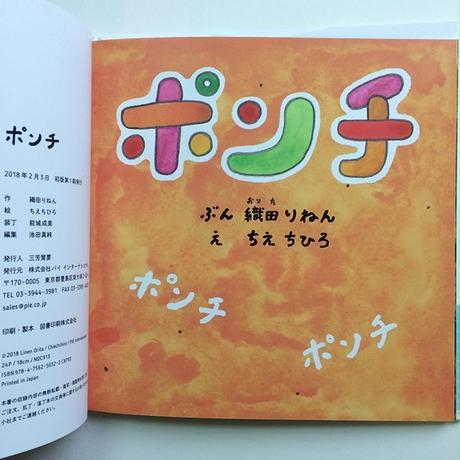 ポンチ
2018年2月3日 初版第1刷発行
作 織田りねん
絵 ちえちひろ
装丁 能城成美
編集 池田真純
発行人 三芳寛要
発行元 株式会社パイ インターナショナル
〒170-0005 東京都豊島区南大塚
TEL 03-3944-3981 FAX 03-5395-
sales@pie.co.jp
印刷・製本 図書印刷株式会社
©2018 Linen Orita / Chiechihiro / PIE International
24P / 18cm / NDC913
ISBN 978-4-7562-5032-2 C8793
Printed in Japan
本書の収録内容の無断転載・複写・
ご注文、乱丁・落丁本の
小社までご連絡ください。
ポンチ
おりた
ぶん 織田りねん
え ちえちひろ
ポンチ
ポンチ